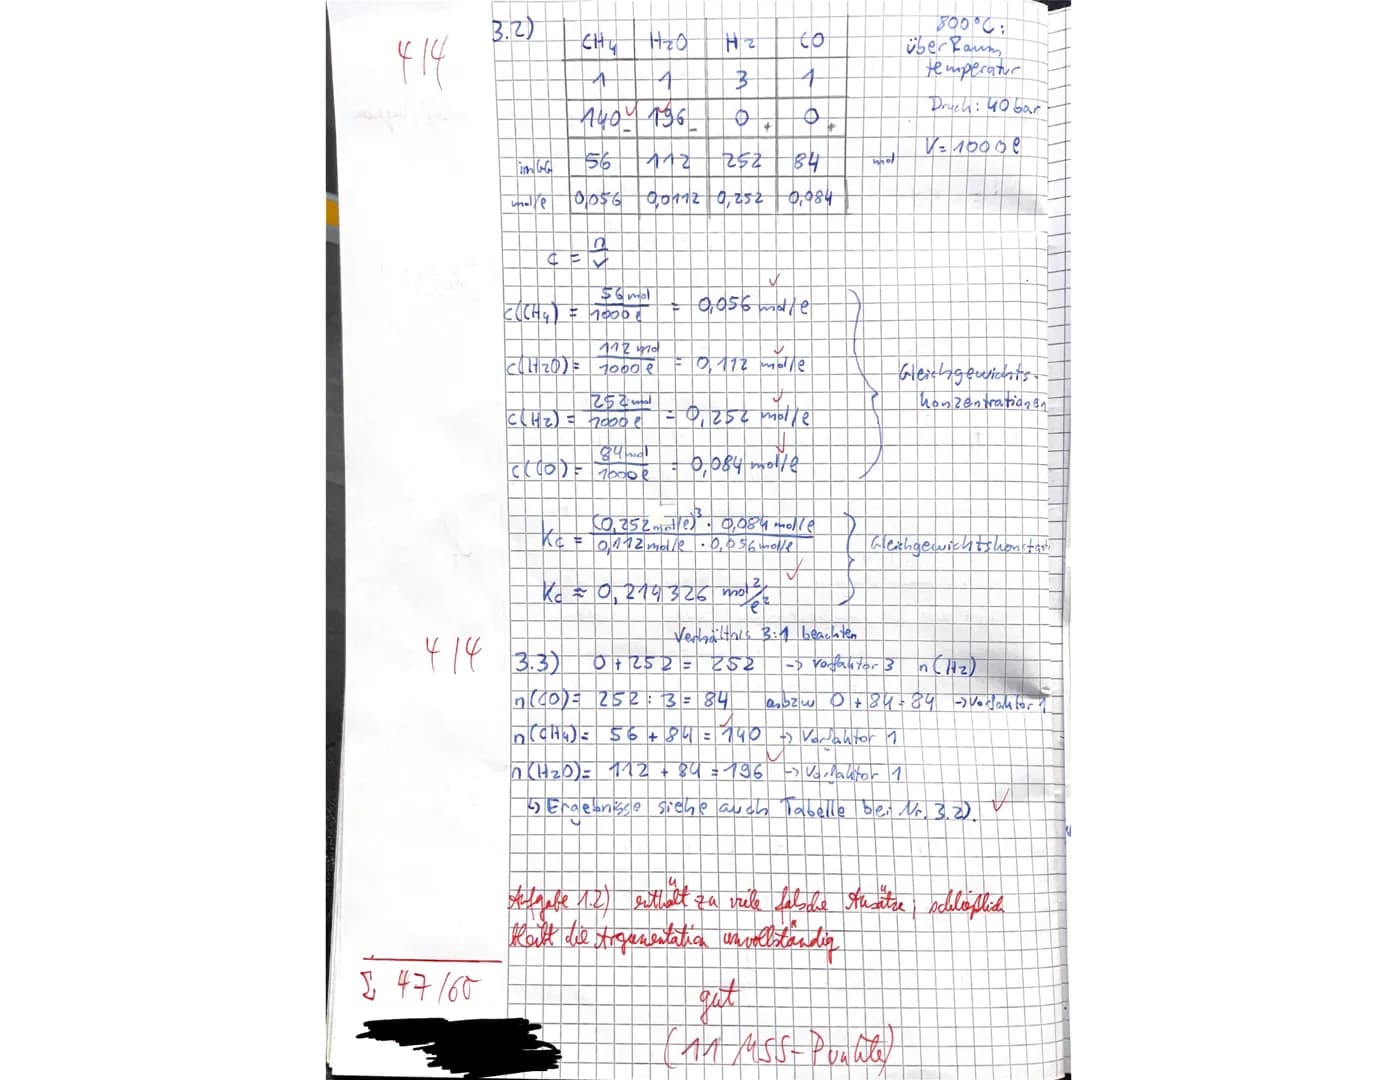 4/4
3.2)
CH4 H2O H2 CO
1 1 3 1
140 196 0 0
- - + +
im GG 56 112 252 84 mol
mol/l 0,056 0,0112 0,252 0,084
800°C:
über Raum
temperatur
Druck: 40 bar
V = 1000 l
c = n/V
c(CH4) = 56 mol/1000 l = 0,056 mol/l
c(H2O) = 112 mol/1000 l = 0,112 mol/l
c(H2) = 252 mol/1000 l = 0,252 mol/l
c(CO) = 84 mol/1000 l = 0,084 mol/l
Gleichgewichts-
konzentrationen
Kc = (0,252 mol/l)³ · 0,084 mol/l / 0,112 mol/l · 0,056 mol/l
Kc ≈ 0,214326 mol²/l²
Gleichgewichtskonstan
Verhältnis 3:1 beachten
4/4
3.3) 0 + 252 = 252 -> Vorfaktor 3 n(H2)
n(CO) = 252 : 3 = 84 bzw 0 + 84 = 84 -> Vorfaktor 1
n(CH4) = 56 + 84 = 140 -> Vorfaktor 1
n(H2O) = 112 + 84 = 196 -> Vorfaktor 1
↳ Ergebnisse siehe auch Tabelle bei Nr. 3.2).
Aufgabe 1.2) enthält zu viele falsche Ansätze, schließlich
bleibt die Argumentation unvollständig
Σ 47/60
gut
(11 MSS-Punkte)